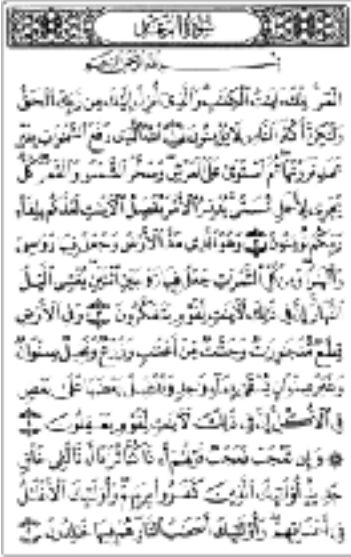 سورة الرعد
بسم الله الرحمن الرحيم
المر تلك ءايت الكتب والذي أنزل إليك من ربك الحق
ولكن أكثر الناس لا يؤمنون الله الذي رفع السموت بغير
عمد ترونها ثم استوى على العرش وسخر الشمس والقمر كل
يجري لأجل مسمى يدبر الأمر يفصل الأيت لعلكم بلقاء
ربكم توقنون وهو الذي مد الأرض وجعل فيها روسي
وأنهرا ومن كل الثمرت جعل فيها زوجين اثنين يغشي اليل
النهار إن في ذلك لأيت لقوم يتفكرون وفي الأرض
قطع متجورت وجنت من أعنب وزرع ونخيل صنوان
وغير صنوان يسقى بماء وحد ونفضل بعضها على بعض
في الأكل إن في ذلك لأيت لقوم يعقلون
وإن تعجب فعجب قولهم أءذا كنا تربا أءنا لفي خلق
جديد أولئك الذين كفروا بربهم وأولئك الأغلل
في أعناقهم وأولئك أصحب النار هم فيها خلدون